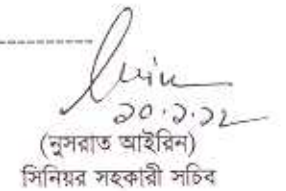 ১০.১.১২
(নুসরাত আইরিন)
সিনিয়র সহকারী সচিব